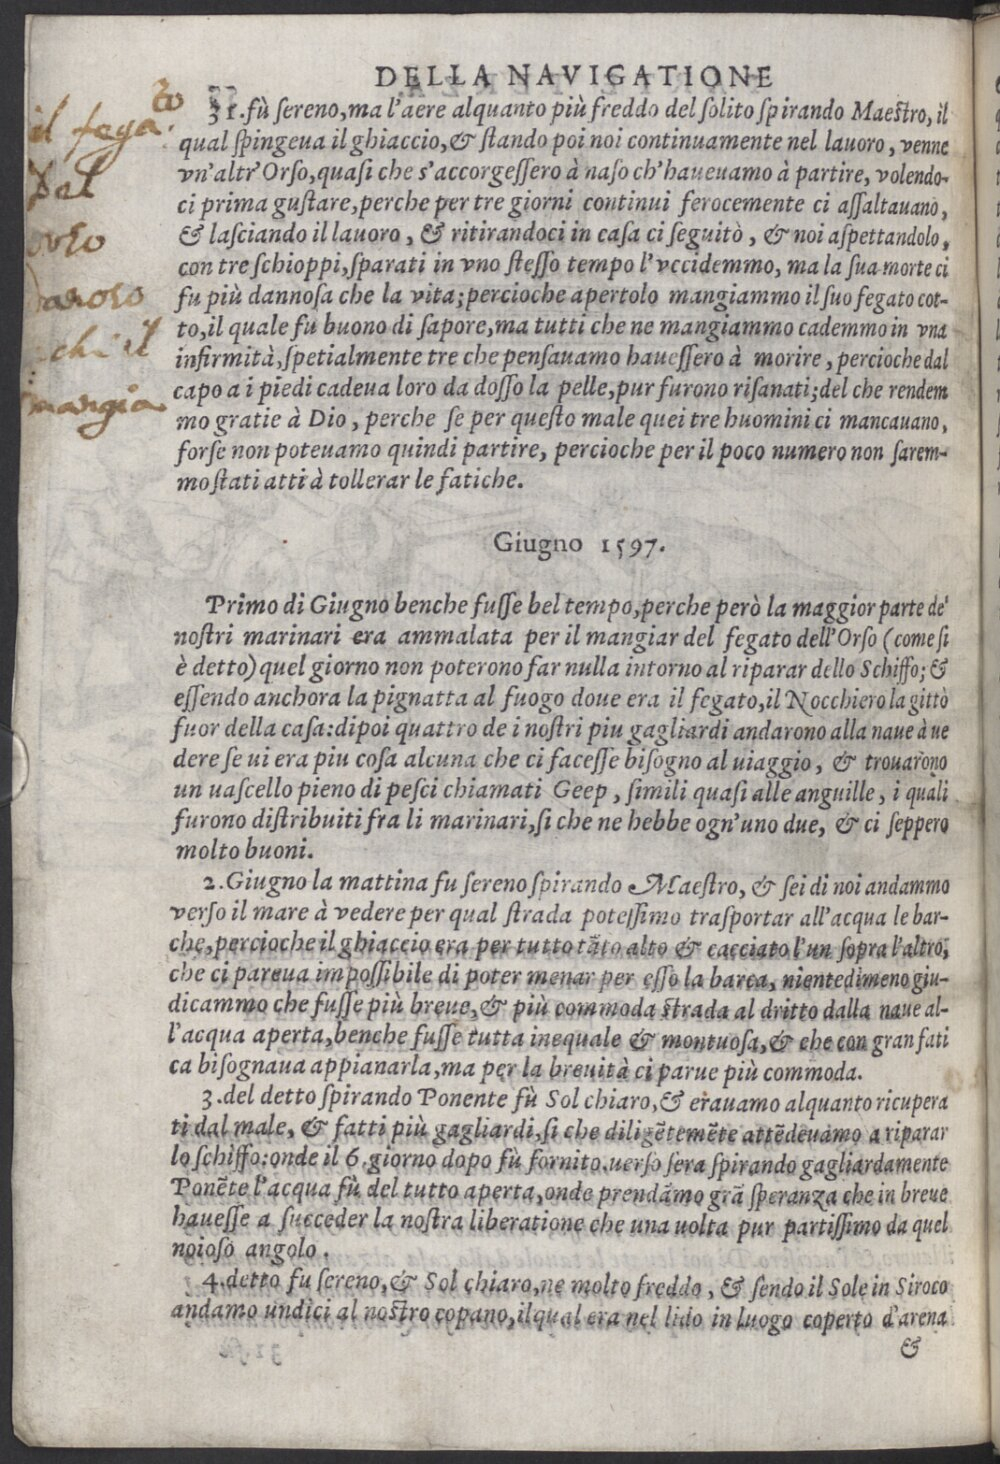 DELLA NAVIGATIONE
31. fù ſereno, ma l'aere alquanto più freddo del ſolito ſpirando Maeſtro, il
qual ſpingeua il ghiaccio, & ſtando poi noi continuamente nel lauoro, venne
vn'altr'Orſo, quaſi che s'accorgeſſero à naſo ch'haueuamo à partire, volendo-
ci prima guſtare, perche per tre giorni continui ferocemente ci aſſaltauano,
& laſciando il lauoro, & ritirandoci in caſa ci ſeguitò, & noi aſpettandolo,
con tre ſchioppi, ſparati in vno ſteſſo tempo l'vccidemmo, ma la ſua morte ci
fu più dannoſa che la vita; percioche apertolo mangiammo il ſuo fegato cot-
to, il quale fù buono di ſapore, ma tutti che ne mangiammo cademmo in vna
infirmità, ſpetialmente tre che penſauamo haueſſero à morire, percioche dal
capo a i piedi cadeua loro da doſſo la pelle, pur furono riſanati; del che rendem
mo gratie à Dio, perche ſe per queſto male quei tre huomini ci mancauano,
forſe non poteuamo quindi partire, percioche per il poco numero non ſarem-
mo ſtati atti à tollerar le fatiche.
il fega
to
del
orſo
mangia
Giugno 1597.
Primo di Giugno benche fuſſe bel tempo, perche però la maggior parte de'
noſtri marinari era ammalata per il mangiar del fegato dell'Orſo (come ſi
è detto) quel giorno non poterono far nulla intorno al riparar dello Schiffo; &
eſſendo anchora la pignatta al fuogo doue era il fegato, il Nocchiero la gittò
fuor della caſa: dipoi quattro de i noſtri piu gagliardi andarono alla naue à ue
dere ſe ui era piu coſa alcuna che ci faceſſe biſogno al uiaggio, & trouarono
un uaſcello pieno di peſci chiamati Geep, ſimili quaſi alle anguille, i quali
furono diſtribuiti fra li marinari, ſi che ne hebbe ogn'uno due, & ci ſeppero
molto buoni.
2. Giugno la mattina fu ſereno ſpirando Maeſtro, & ſei di noi andammo
verſo il mare à vedere per qual ſtrada poteſſimo traſportar all'acqua le bar-
che, percioche il ghiaccio era per tutto tãto alto & cacciato l'un ſopra l'altro,
che ci pareua impoſſibile di poter menar per eſſo la barca, nientedimeno giu-
dicammo che fuſſe più breue, & più commoda ſtrada al dritto dalla naue al-
l'acqua aperta, benche fuſſe tutta inequale & montuoſa, & che con gran fati
ca biſognaua appianarla, ma per la breuità ci parue più commoda.
3. del detto ſpirando Ponente fù Sol chiaro, & erauamo alquanto ricupera
ti dal male, & fatti più gagliardi, ſi che diligẽtemẽte attẽdeuamo a riparar
lo ſchiffo: onde il 6. giorno dopo fù fornito. uerſo ſera ſpirando gagliardamente
Ponẽte l'acqua fù del tutto aperta, onde prendãmo grã ſperanza che in breue
haueſſe a ſucceder la noſtra liberatione che una uolta pur partiſſimo da quel
noioſo angolo.
4. detto fu ſereno, & Sol chiaro, ne molto freddo, & ſendo il Sole in Siroco
andamo undici al noſtro copano, ilqual era nel lido in luogo coperto d'arena
&